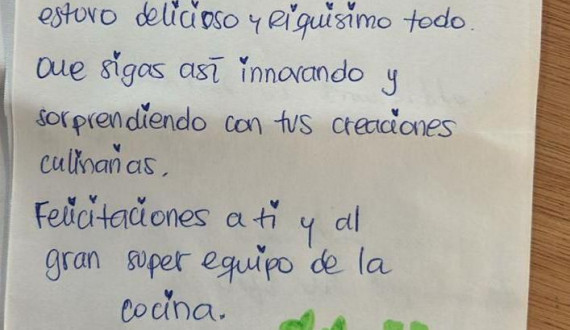 estuvo delicioso y riquísimo todo.
Que sigas así innovando y
sorprendiendo con tus creaciones
culinarias.
Felicitaciones a ti y al
gran super equipo de la
cocina.